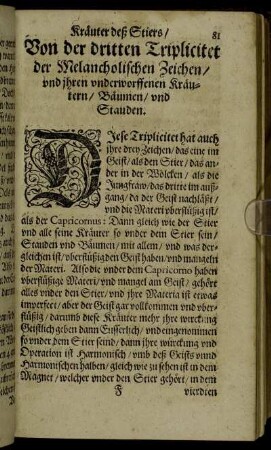 Kräuter deß Stiers/ 81
Von der dritten Triplicitet
der Melancholischen Zeichen/
vnd jhren vnderworffenen Kräu-
tern/ Bäumen/ vnd
Stauden.
DIese Triplicitet hat auch
jhre drey Zeichen/ das eine im
Geist/ als den Stier/ das an-
der in der Wölcken/ als die
Jungfraw/ das dritte im auff-
gang/ da der Geist nachläßt/
vnd die Materi vberflüßig ist/
als der Capricornus: Dann gleich wie der Stier
vnd alle seine Kräuter so vnder dem Stier sein/
Stauden vnd Bäumen/ mit allem/ vnd was der-
gleichen ist/ vberflüßigden Geist haben/ vnd mangeln
der Materi. Also die vnder dem Capricorno haben
vberflüßige Materi/ vnd mangel am Geist/ gehört
alles vnder den Stier/ vnd jhre Materia ist etwas
imperfect/ aber der Geist gar vollkommen vnd vber-
flüßig/ darumb diese Kräuter mehr jhre würckung
Geistlich geben dann Eusserlich/ vndeingenommen
so vnder dem Stier seind/ dann jhre würckung vnd
Operation ist Harmonisch/ vmb deß Geists vnnd
Harmonischen halben/ gleich wie zu sehen ist in dem
Magnet/ welcher vnder den Stier gehört/ in dem
F vierdten